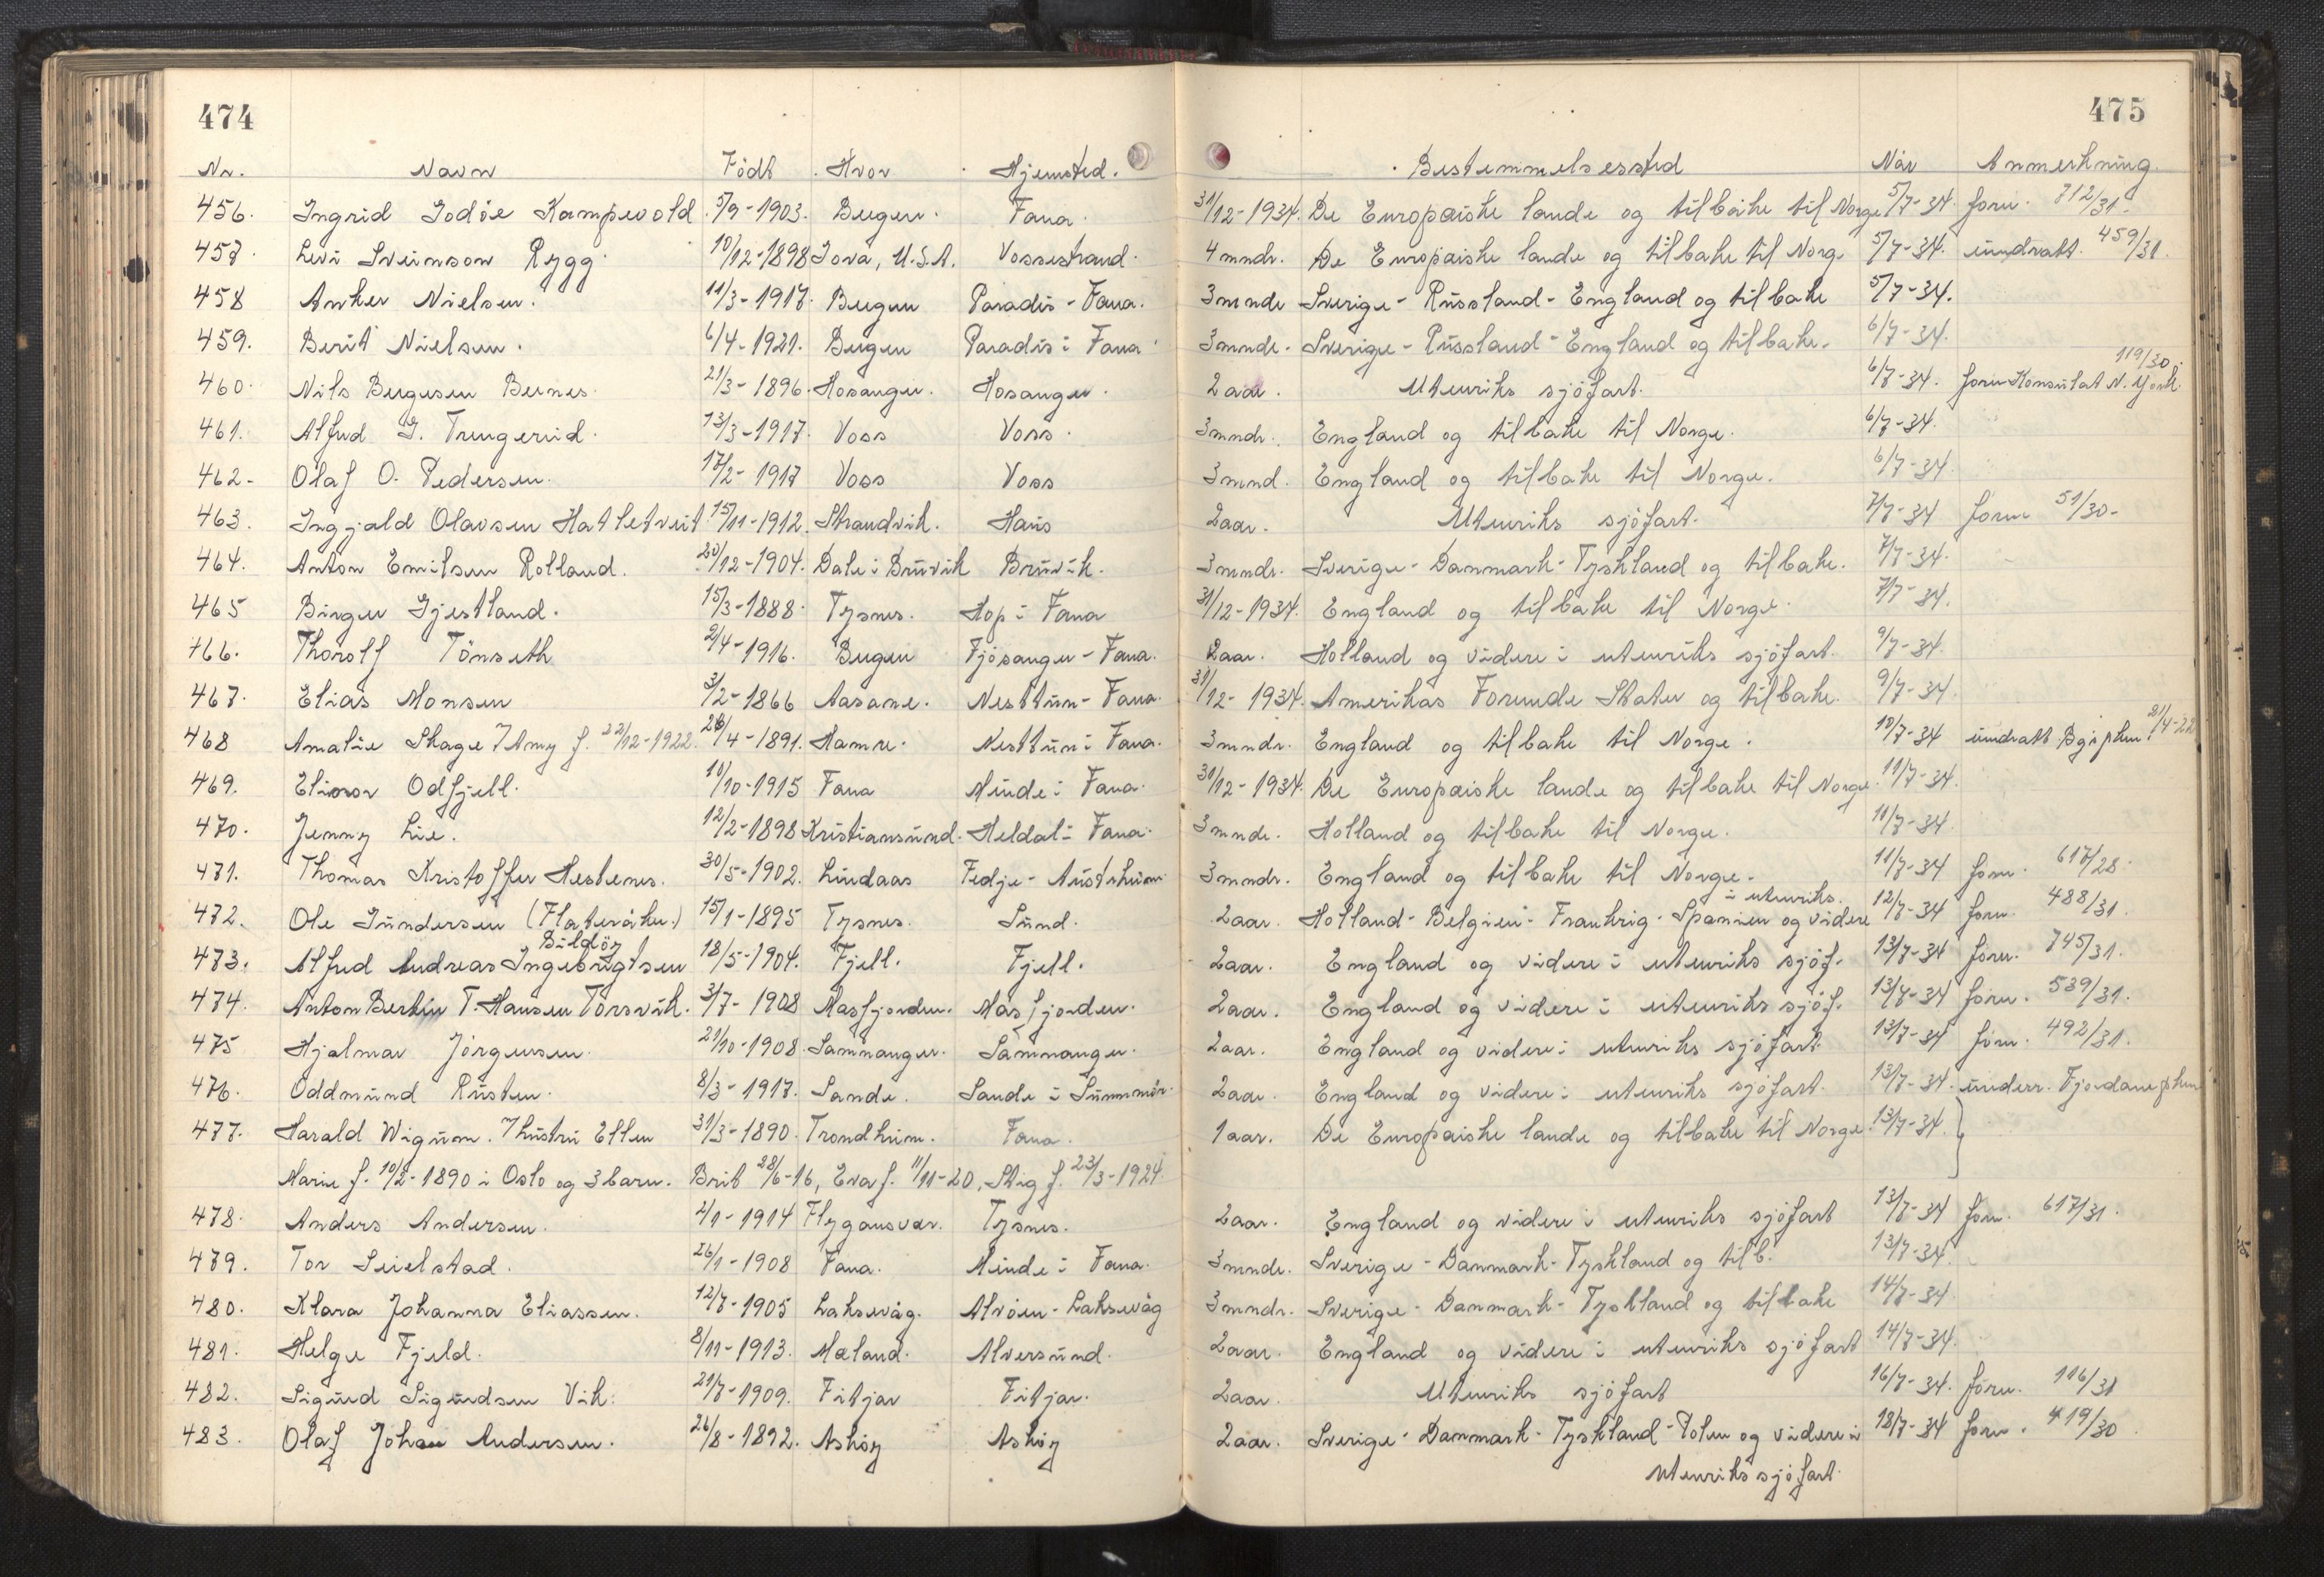 474
475
Nr. Navn Födt Hvor Hjemsted. Bestemmelsessted Når Anmerkning.
456. Ingrid Godöe Kampevold. 5/9-1903. Bergen. Fana. 31/12-1934. De Europæiske lande og tilbake til Norge 5/7-34. forn. 812/31.
457. Levi Sveinson Rygg. 10/12-1898 Iova, U.S.A. Vossestrand. 4 mndr. De Europæiske lande og tilbake til Norg. 5/7-34. inndratt. 459/31.
458 Anker Nielsen. 11/3-1917. Bergen Paradis-Fana. 3 mndr Sverige-Russland-England og tilbake 5/7-34.
459. Berit Nielsen. 6/4-1921. Bergen Paradis i Fana 3 mndr. Sverige-Russland-England og tilbake. 6/7-34.
460. Nils Bergesen Bernes. 21/3-1896. Hosanger. Hosanger. 2 aar. Utenriks sjöfart. 6/7-34. forn Konsulat N. York. 119/30.
461. Alfred G. Trengereid. 13/3-1917. Voss Voss. 3 mndr. England og tilbake til Norge. 6/7-34.
462- Olaf O. Pedersen. 17/2-1917 Voss Voss 3 mnd. England og tilbake til Norge. 6/7-34.
463. Ingjald Olavsen Hatletveit 15/11-1912. Strandvik. Haus 2 aar. Utenriks sjöfart. 7/7-34 forn 51/30-
464. Anton Emilsen Rolland. 20/12-1904. Dale i Bruvik Bruvik. 3 mndr. Sverige-Danmark-Tyskland og tilbake. 7/7-34.
465 Birger Gjestland. 15/3-1888. Tysnes. Hop i Fana 31/12-1934. England og tilbake til Norge. 7/7-34.
466. Thorolf Tönseth 2/4-1916. Bergen Fjösanger-Fana. 2 aar. Holland og videre i utenriks sjöfart. 9/7-34.
467. Elias Monsen 3/2-1866 Aasane. Nesttun-Fana. 31/12-1934. Amerikas Forende Stater og tilbake. 9/7-34
468 Amalie Skage 7 Amy f. 22/12-1922. 26/4-1891. Hamre. Nesttun i Fana. 3 mndr. England og tilbake til Norge. 10/7-34 inndratt Bg. pkm. 21/4-22
469. Elinor Odfjell. 10/10-1915 Fana Minde i Fana. 31/12-1934. De Europæiske lande og tilbake til Norge. 11/7-34.
470. Jenny Lie. 12/2-1898 Kristiansund. Heldal i Fana. 3 mndr. Holland og tilbake til Norge. 11/7-34.
471. Thomas Kristoffer Hestenes. 30/5-1902. Lindaas Fedje-Austrheim. 3 mndr. England og tilbake til Norge. 11/7-34 forn. 617/28.
i utenriks.
472. Ole Gundersen (Flateråker.) 15/1-1895 Tysnes. Sund. 2 aar. Holland-Belgien-Frankrig-Spanien og videre 12/7-34 forn. 488/31.
Bildöy
473. Alfred Andreas Ingebrigtsen 18/5-1904. Fjell. Fjell. 2 aar. England og videre i utenriks sjöf. 13/7-34 forn. 745/31.
474. Anton Bertin T. Hansen Torsvik. 3/7-1908 Masfjorden. Masfjorden. 2 aar. England og videre i utenriks sjöf. 13/7-34 forn. 539/31.
475 Hjalmar Jörgensen. 21/10-1908. Samnanger. Samnanger. 2 aar. England og videre i utenriks sjöfart. 13/7-34 forn. 492/31.
476. Oddmund Rusten. 8/3-1917. Sande. Sande i Sunnmör. 2 aar. England og videre i utenriks sjöfart. 13/7-34. underr. Fjordane pkm
477. Harald Wigum. 7 hustru Ellen 31/3-1890. Trondheim. Fana. 1 aar. De Europæiske lande og tilbake til Norge. 13/7-34.
Marie f. 10/2-1890 i Oslo og 3 barn. Brit 28/6-16, Eva f. 11/11-20, Stig f. 23/3-1924.
478. Anders Andersen. 2/1-1914 Flygansvær. Tysnes. 2 aar. England og videre i utenriks sjöfart 13/7-34 forn. 617/31.
479. Tor Leielstad. 26/1-1908 Fana. Minde i Fana. 3 mndr. Sverige-Danmark-Tyskland og tilb. 13/7-34.
480. Klara Johanna Eliassen. 12/7-1905 Laksevåg. Alvöen-Laksevåg 3 mndr. Sverige-Danmark-Tyskland og tilbake 14/7-34
481. Helge Fjeld. 8/11-1913. Mæland. Alversund. 2 aar. England og videre i utenriks sjöfart 14/7-34.
482. Sigurd Sigurdsen Vik. 21/7-1909. Fitjar Fitjar. 2 aar. Utenriks sjöfart 16/7-34. forn. 116/31
483. Olaf Johan Andersen. 26/8-1892. Asköy Asköy 2 aar. Sverige-Danmark-Tyskland-Polen og videre i 18/7-34 forn. 419/30.
utenriks sjöfart.